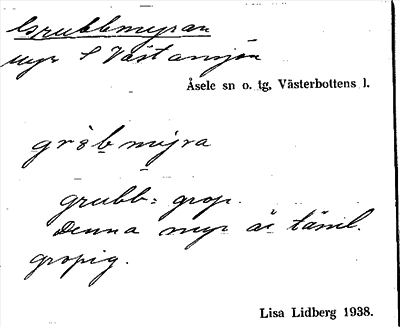 Grubbmyran
myr S Västansjön
Åsele sn o. tg, Västerbottens l.
gröbmyra
grubb = grop.
Denna myr är täml.
gropig.
Lisa Lidberg 1938.